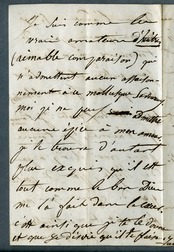 Je suis comme les
vrais amateurs d'huîtres
(aimable comparaison) qui
n'admettent aucun assaison-
nement à ce mollusque
moi qui ne puis
aucune épice à mon
je le trouve d'autant
plus exquis qu'il est
tout comme le bon Dieu
me l'a fait dans
c'est ainsi que je te le donne
et que je désire qu'il te plaise